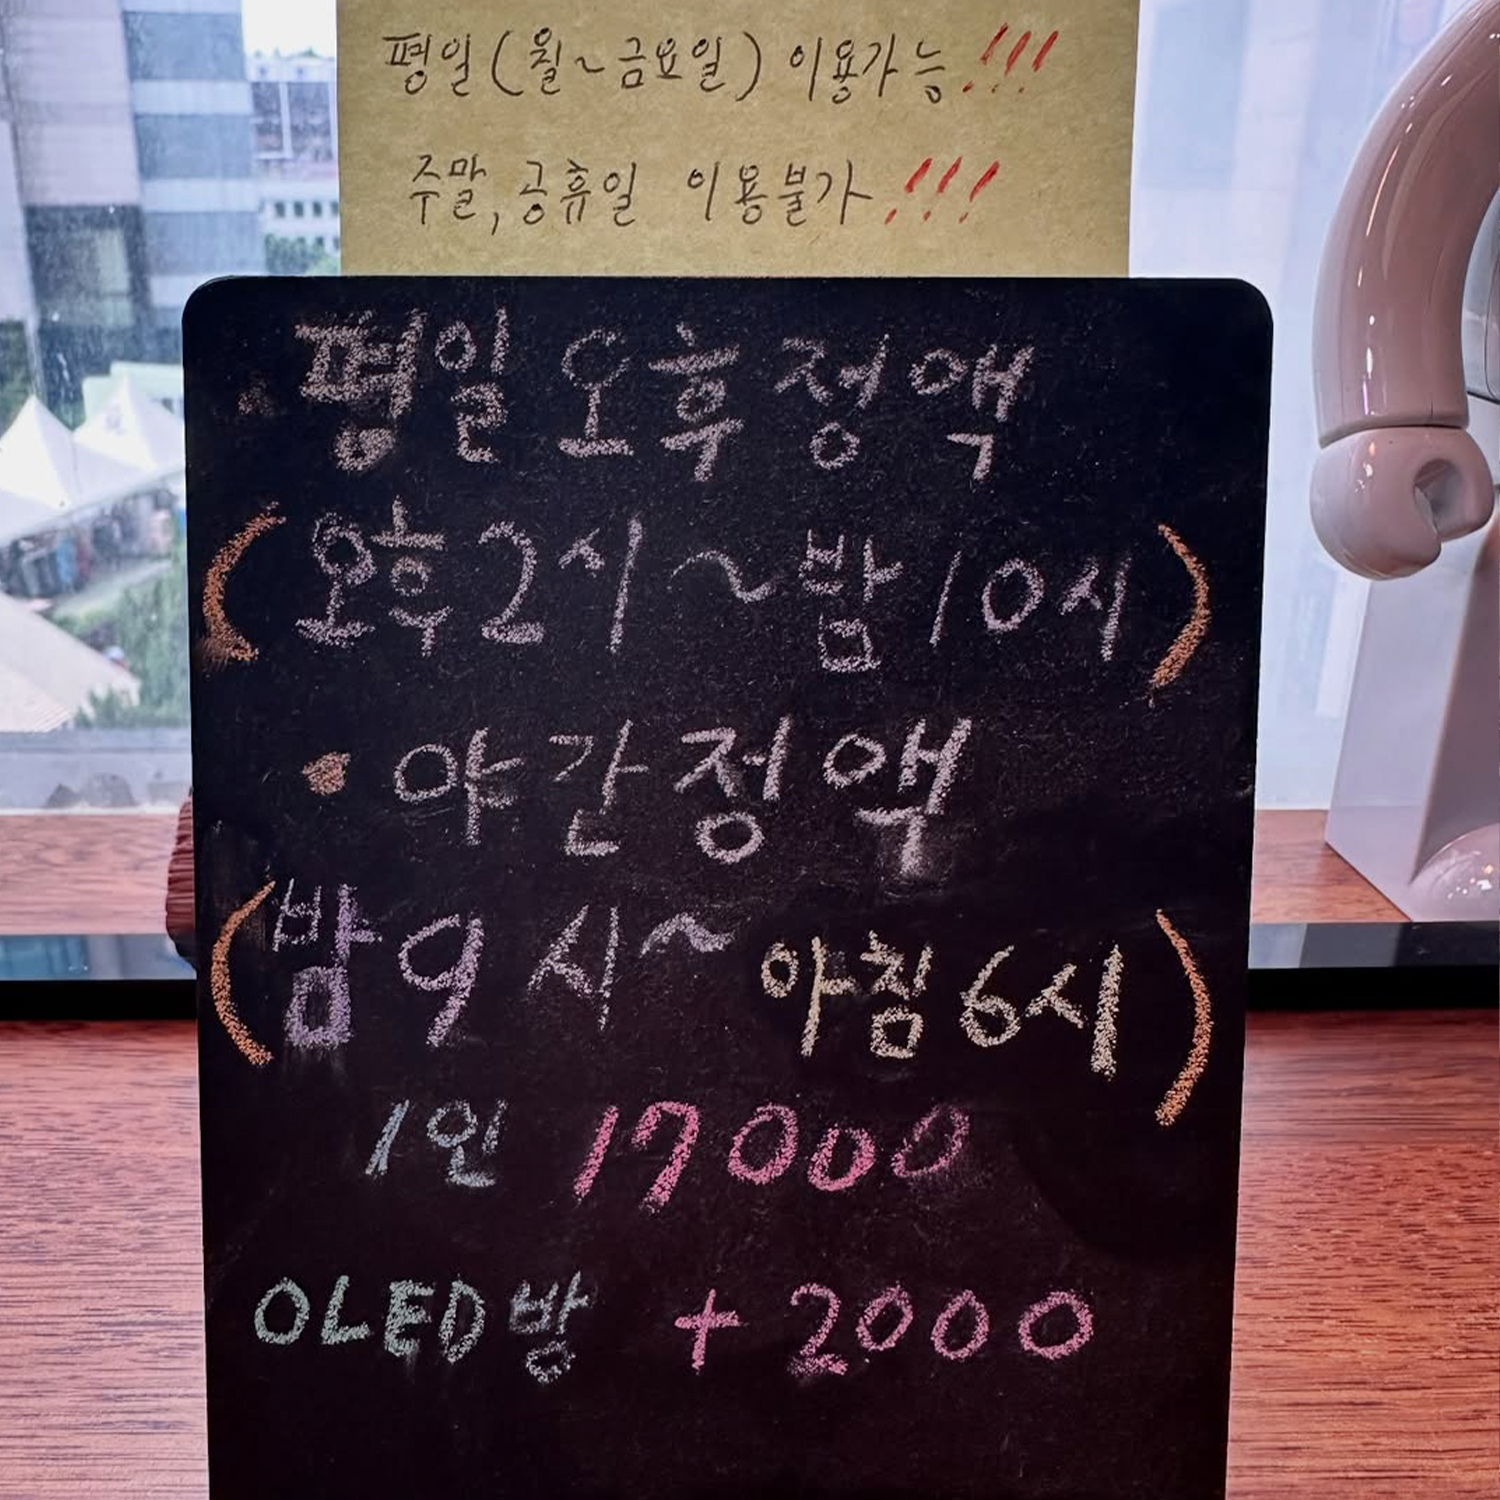 평일(월~금요일) 이용가능!!!
주말,공휴일 이용불가!!!
평일오후정액
(오후2시~밤10시)
• 야간정액
(밤9시~아침6시)
1인 17000
OLED방 +2000